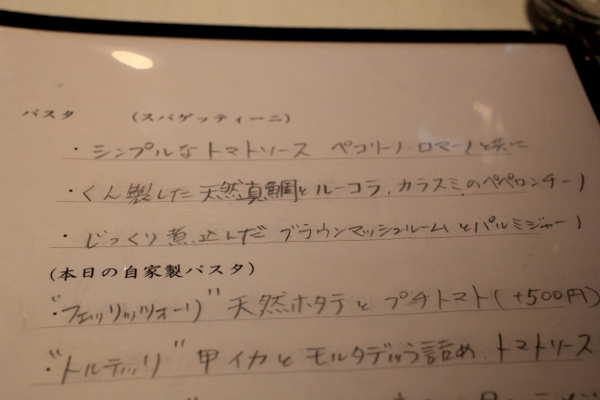 パスタ (スパゲッティーニ)
・シンプルなトマトソース ペコリーノ・ロマーノと共に
・くん製した天然真鯛とルーコラ、カラスミのペペロンチーノ
・じっくり煮込んだブラウンマッシュルームとパルミジャーノ
(本日の自家製パスタ)
・"フェリリッツォーリ" 天然ホタテとプチトマト(+500円)
・"トルテッリ" 甲イカとモルタデッラ詰め トマトソース